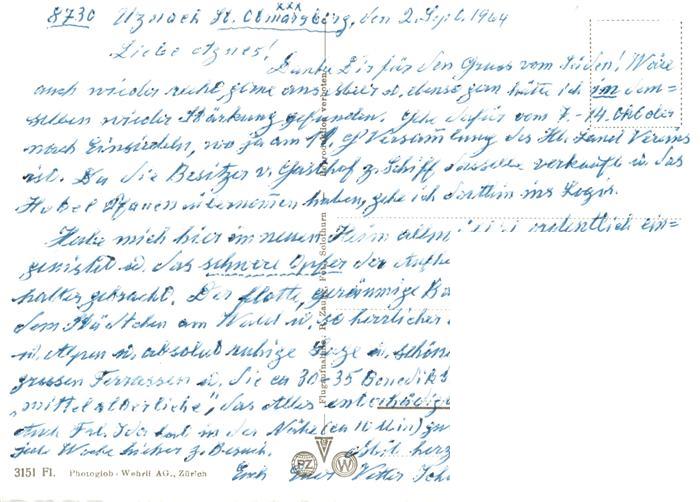 8730 Uznach St. Otmarsberg, den 2. Sept. 1964
xxx
Liebe Agnes!
Danke Dir für den Gruss vom Süden! Wäre
auch wieder recht gerne ans u. ebenso gern hätte ich im dem=
selben wieder Stärkung gefunden. Gehe dafür vom 7.-14. Okt. der
nach Einsiedeln, wo ja am Versammlung des Hl. Land Vereins
ist. Da die Besitzer v. Gasthof z. Schiff dasselbe verkauft u. das
Hotel Pfauen übernommen haben, gehe ich dorthin ins Logis.
Habe mich hier im neuen Heim allem ordentlich ein=
genistet u. das schwere Opfer der
halter gebracht. Der flotte, geräumige
dem Städtchen am Wald u. so herrlicher
u. Alpen u. absolut ruhige Lage u. schöne
grossen Terrassen u. die ca 30-35 Benedik
„mittelalterliche", das Alles entschädig
Auch Frl. Ida hat in der Nähe (ca 10 Min)
jede Woche hieher z. Besuch. herz
Euer Vetter
Reproduktion verboten
Flugaufnahme R. Zaugg, Feld, Solothurn
PZ W
3151 Fl. Photoglob-Wehrli AG., Zürich